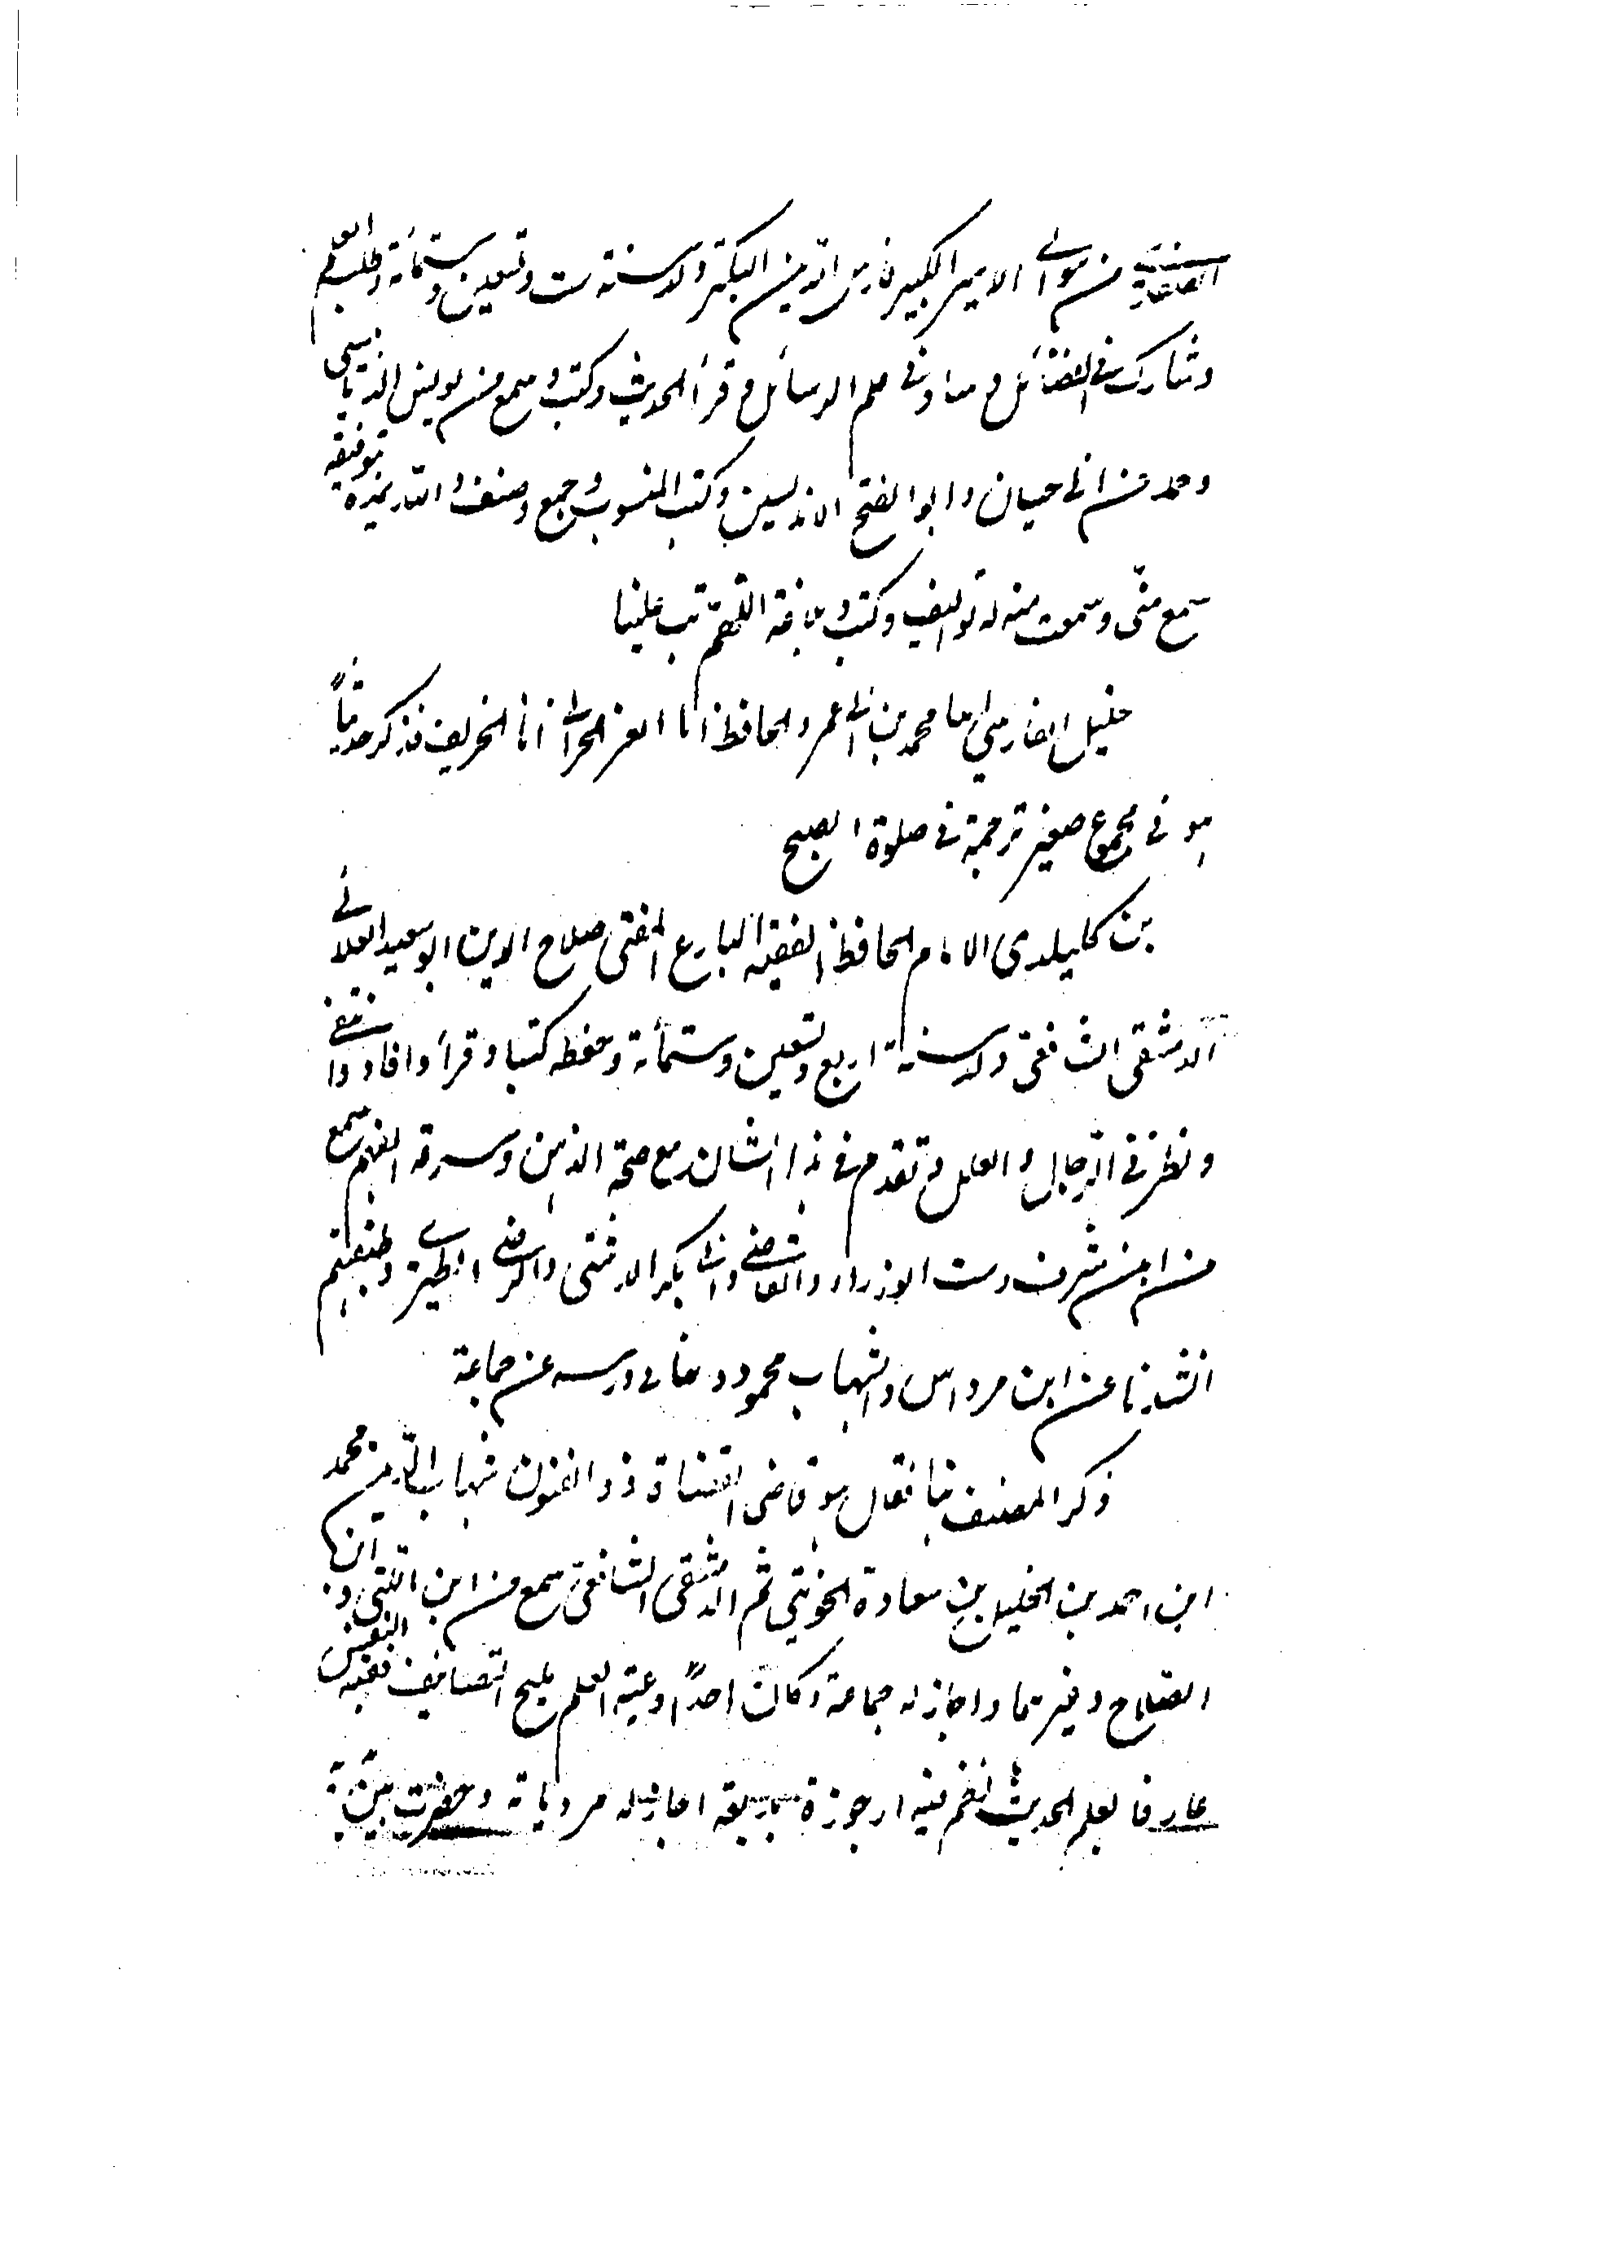 الصفدي من موالي الامير الكبير فارس الدين البكتر ولد سنة ست وتسعين وستمائة وطلب العلم
وشارك في الفضائل وساد في علم الرسائل وقرأ الحديث وكتب وسمع من يونس الدبابيسي
وحمد من ابي حيان وابو الفتح الاندلسين وكتب المنسوب وجمع وصنف والله يمده بتوفيقه
سمع منى وسمعت منه له تواليف وكتب وبلاغة اللهم تب علينا
خليل الفارسي انا محمد بن ابي عمرو الحافظ انا العز الحراني انا الخريف فذكر حديثاً
هو في مجموع صغير ترجمته في صلوة الصبح
بن كيكلدى الامام الحافظ الفقيه البارع المفتى صلاح الدين ابو سعيد العلائي
الدمشقى الشافعى ولد سنة اربع وتسعين وستمأة وحفظ كتبا وقرأ وافاد وانتقى
ونظر في الرجال والعلل وتقدم في هذا الشان مع صحة الذهن وسرعة الفهم سمع
من ابن مشرف وست الوزراء والقاضي وابي بكر الدشتى والرضي الطبري وطبقتهم
انشدنا عن ابن مرداس والشهاب محمود دعاني درسه عن جماعة
ذكر المصنف هنا فقال هو قاضى القضاة ذو الفنون شهاب الدين محمد
ابن احمد بن الخليل بن سعادة الخويّي ثم الدمشقى الشافعى سمع من ابن اللتى وابن
الصلاح وغيرهما واجاز له جماعة وكان احدًا اوعية العلم مليح التصانيف فقيه النفس
عارفا بعلم الحديث نظم فيه ارجوزة بديعة اجاز له مروياته وحضرت بين